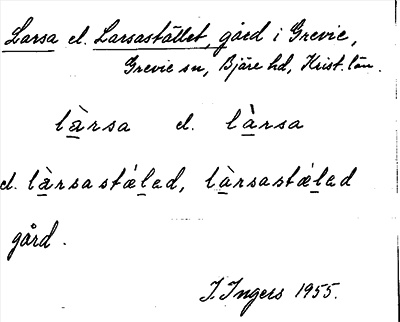 Larsa el. Larsastället, gård i Grevie,
Grevie sn, Bjäre hd, Krist. län.
làrsa el. làrsa
el. làrsastálad, làrsastálad
gård.
I. Ingers 1955.